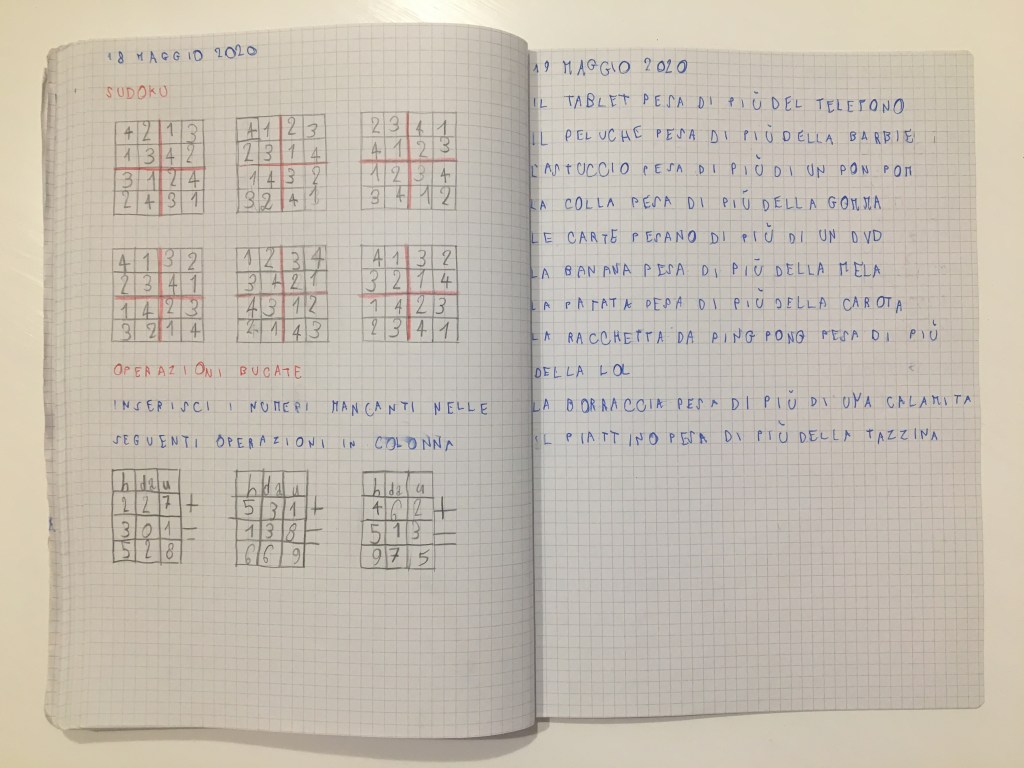 18 MAGGIO 2020
SUDOKU
4 2 1 3
1 3 4 2
3 1 2 4
2 4 3 1
4 1 2 3
2 3 1 4
1 4 3 2
3 2 4 1
2 3 4 1
4 1 2 3
1 2 3 4
3 4 1 2
4 1 3 2
2 3 4 1
1 4 2 3
3 2 1 4
1 2 3 4
3 4 2 1
4 3 1 2
2 1 4 3
4 1 3 2
3 2 1 4
1 4 2 3
2 3 4 1
OPERAZIONI BUCATE
INSERISCI I NUMERI MANCANTI NELLE
SEGUENTI OPERAZIONI IN COLONNA
h da u
2 2 7 +
3 0 1 =
5 2 8
h da u
5 3 1 +
1 3 8 =
6 6 9
h da u
4 6 2 +
5 1 3 =
9 7 5
19 MAGGIO 2020
IL TABLET PESA DI PIÙ DEL TELEFONO
IL PELUCHE PESA DI PIÙ DELLA BARBIE
L'ASTUCCIO PESA DI PIÙ DI UN PON PON
LA COLLA PESA DI PIÙ DELLA GOMMA
LE CARTE PESANO DI PIÙ DI UN DVD
LA BANANA PESA DI PIÙ DELLA MELA
LA PATATA PESA DI PIÙ DELLA CAROTA
LA RACCHETTA DA PING PONG PESA DI PIÙ
DELLA LOL
LA BORRACCIA PESA DI PIÙ DI UNA CALAMITA
IL PIATTINO PESA DI PIÙ DELLA TAZZINA